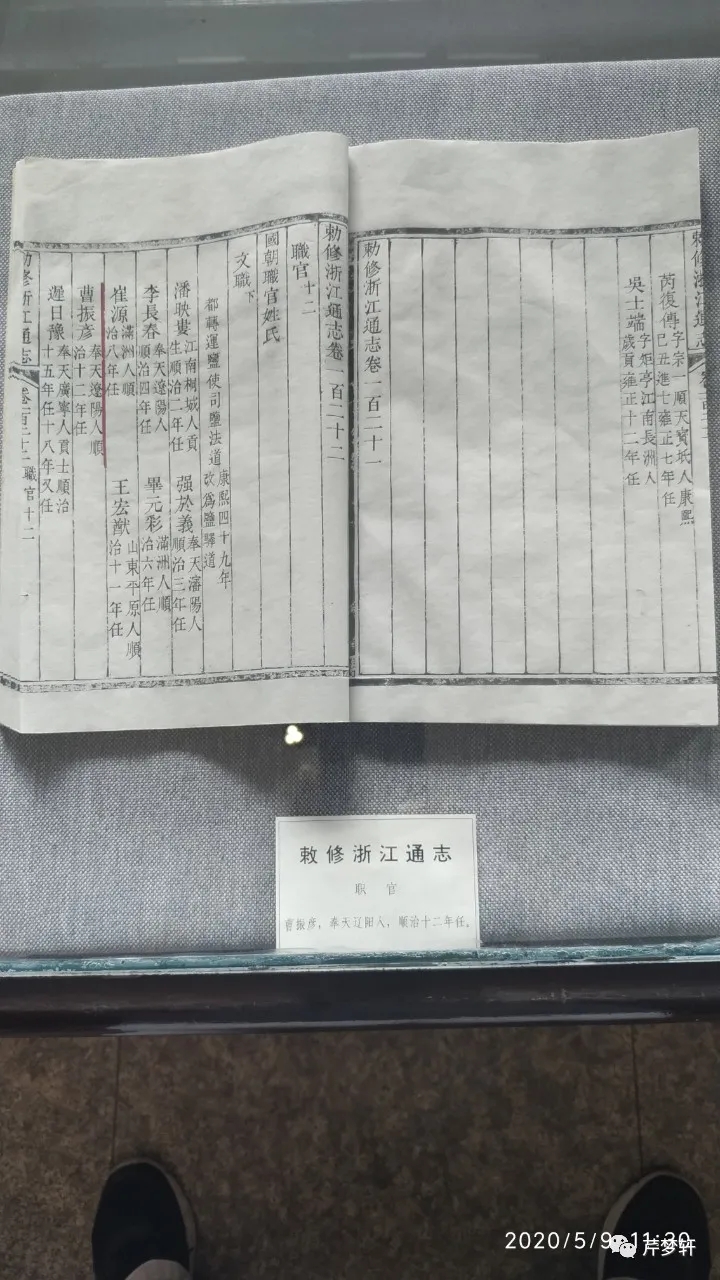 敕修浙江通志
芮復傳字宗一順天寶坻人康熙己丑進士雍正七年任
吳士端字矩亭江南長洲人歲貢雍正十二年任
敕修浙江通志卷一百二十一
敕修浙江通志卷一百二十二
職官十二
國朝職官姓氏
文職下
都轉運鹽使司鹽法道康熙四十九年改為鹽驛道
潘映婁江南桐城人貢生順治二年任 强於義奉天瀋陽人順治三年任
李長春奉天遼陽人順治四年任 畢元彩滿洲人順治六年任
崔源滿洲人順治八年任 王宏猷山東平原人順治十一年任
曹振彥奉天遼陽人順治十二年任
遲日豫奉天廣寧人貢士順治十五年任十八年又任
敕修浙江通志 卷一百二十二 職官十二 一
敕修浙江通志
职官
曹振彦,奉天辽阳人,顺治十二年任。
2020/5/9 11:30
芹梦轩